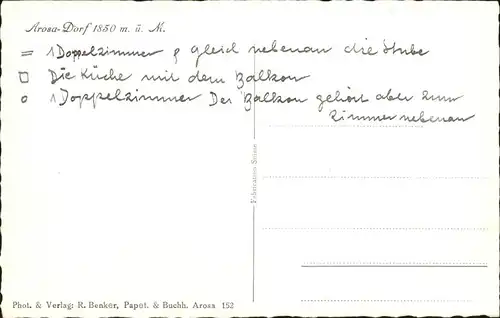 Arosa-Dorf 1850 m. ü. M.
= 1 Doppelzimmer & gleich nebenan die Stube
□ Die Küche mit dem Balkon
o 1 Doppelzimmer Der Balkon gehört aber zum
Zimmer nebenan
Fabrication Suisse
Phot. & Verlag: R. Benker, Papet. & Buchh. Arosa 152